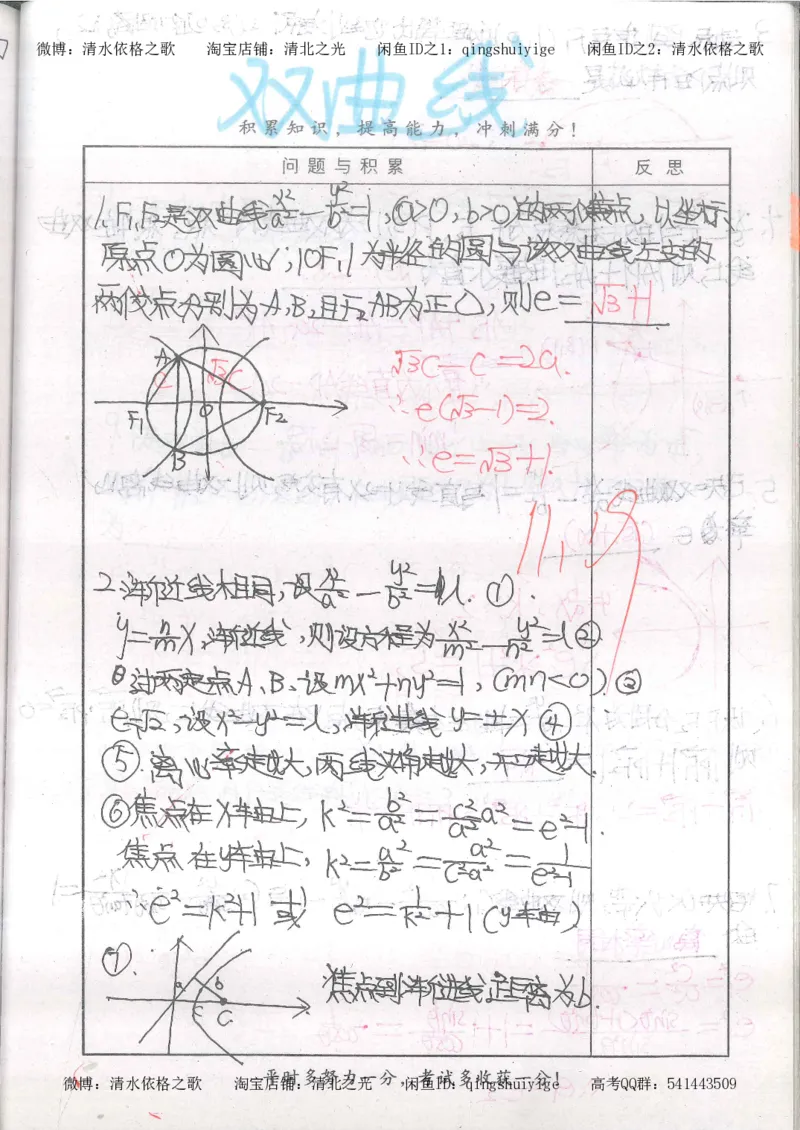 微博：清水依格之歌 淘宝店铺：清北之光 闲鱼ID之1：qingshuiyige 闲鱼ID之2：清水依格之歌
双曲线
积累知识，提高能力，冲刺满分！
问题与积累 反思
1. F₁,F₂是双曲线x²/a²－y²/b²=1,(a>0,b>0)的两个焦点,以坐标
原点O为圆心,|OF₁|为半径的圆与该双曲线左支的
两个交点分别为A,B,且F₂AB为正△,则e=√3+1
A C √3C
F₁ O F₂
B
√3C－C=2a.
∴e(√3－1)=2.
∴e=√3+1.
11,19
2.渐近线相同,设x²/a²－y²/b²=λ. ①.
y=n/m x,渐近线,则设方程为x²/m²－y²/n²=λ②
过两定点A、B、设mx²+ny²=1,(mn<0)③
e=√2,设x²－y²=λ,渐近线y=±x④
⑤.离心率越大,两线夹角越大,开口越大.
⑥焦点在x轴上, k²=b²/a²=c²－a²/a²=e²－1.
焦点在y轴上, k²=a²/b²=a²/c²－a²=1/e²－1
∴e²=k²+1 或 e²=1/k²+1(y轴)
⑦.
a b
C
焦点到渐近线,距离为b.
平时多努力一分，考试多收获一分！
微博：清水依格之歌 淘宝店铺：清北之光 闲鱼ID：qingshuiyige 高考QQ群：541443509